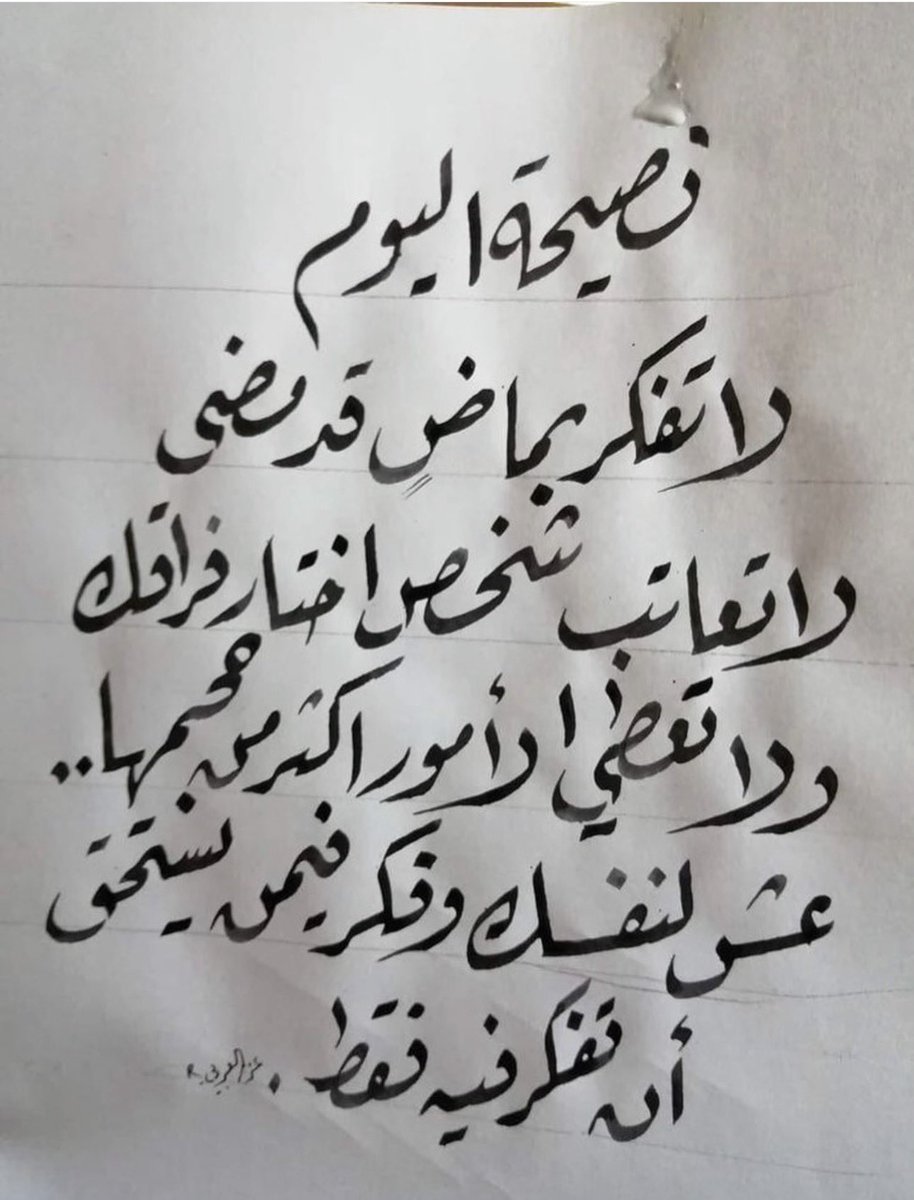 نصيحة اليوم
لا تفكر بماضٍ قد مضى
لا تعاتب شخص اختار فراقك
ولا تعطي الأمور اكثر من حجمها..
عش لنفسك وفكر فيمن يستحق
أن تفكر فيه فقط.